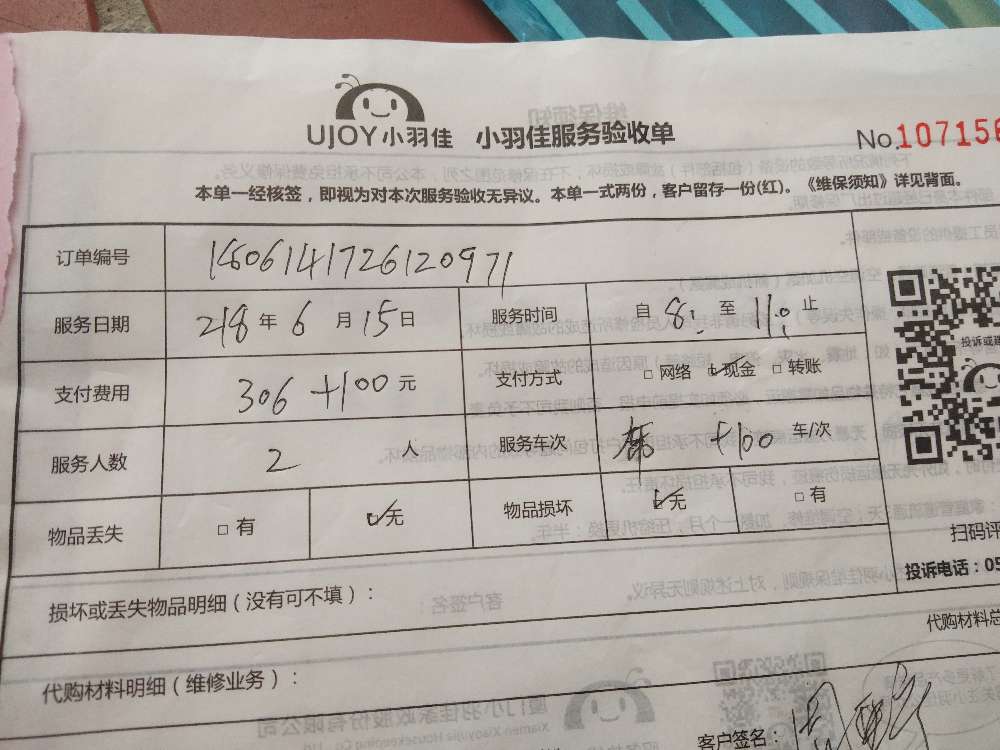 UJOY小羽佳 小羽佳服务验收单 No.107156
本单一经核签，即视为对本次服务验收无异议。本单一式两份，客户留存一份(红)。《维保须知》详见背面。
订单编号
服务日期 218年6月15日 服务时间 自8:至11:0止
支付费用 306+100元 支付方式 □网络 ☑现金 □转账
服务人数 2人 服务车次 +100车/次
物品丢失 □有 ☑无 物品损坏 ☑无 □有
投诉或建
扫码评
投诉电话：05
损坏或丢失物品明细（没有可不填）：
代购材料总
代购材料明细（维修业务）：
客户签名：